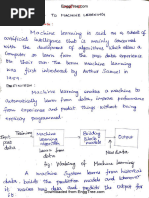 EnggTree.com
TO MACHINE LEARNING
Machine learning is said as a subset of
artificial intelligence that is mainly concerned
with the development of algorithms which allow a
Computer to learn from the data past experience
on their own. The term machine learning
was first introduced by Arthur Samuel in
1959.
Definition:
Machine learning enables a machine to
automatically learn from data, improve performance
from experience and predict things without being
explicitly programmed.
Training
Input past data
Machine learning algorithm
Building models
Output
learn from data
New Data
Fig: Working of Machine Learning
A machine System learns from historical
data, builds the prediction models and whenever
it receives new data and predicts the output for
it.
Downloaded from EnggTree.com